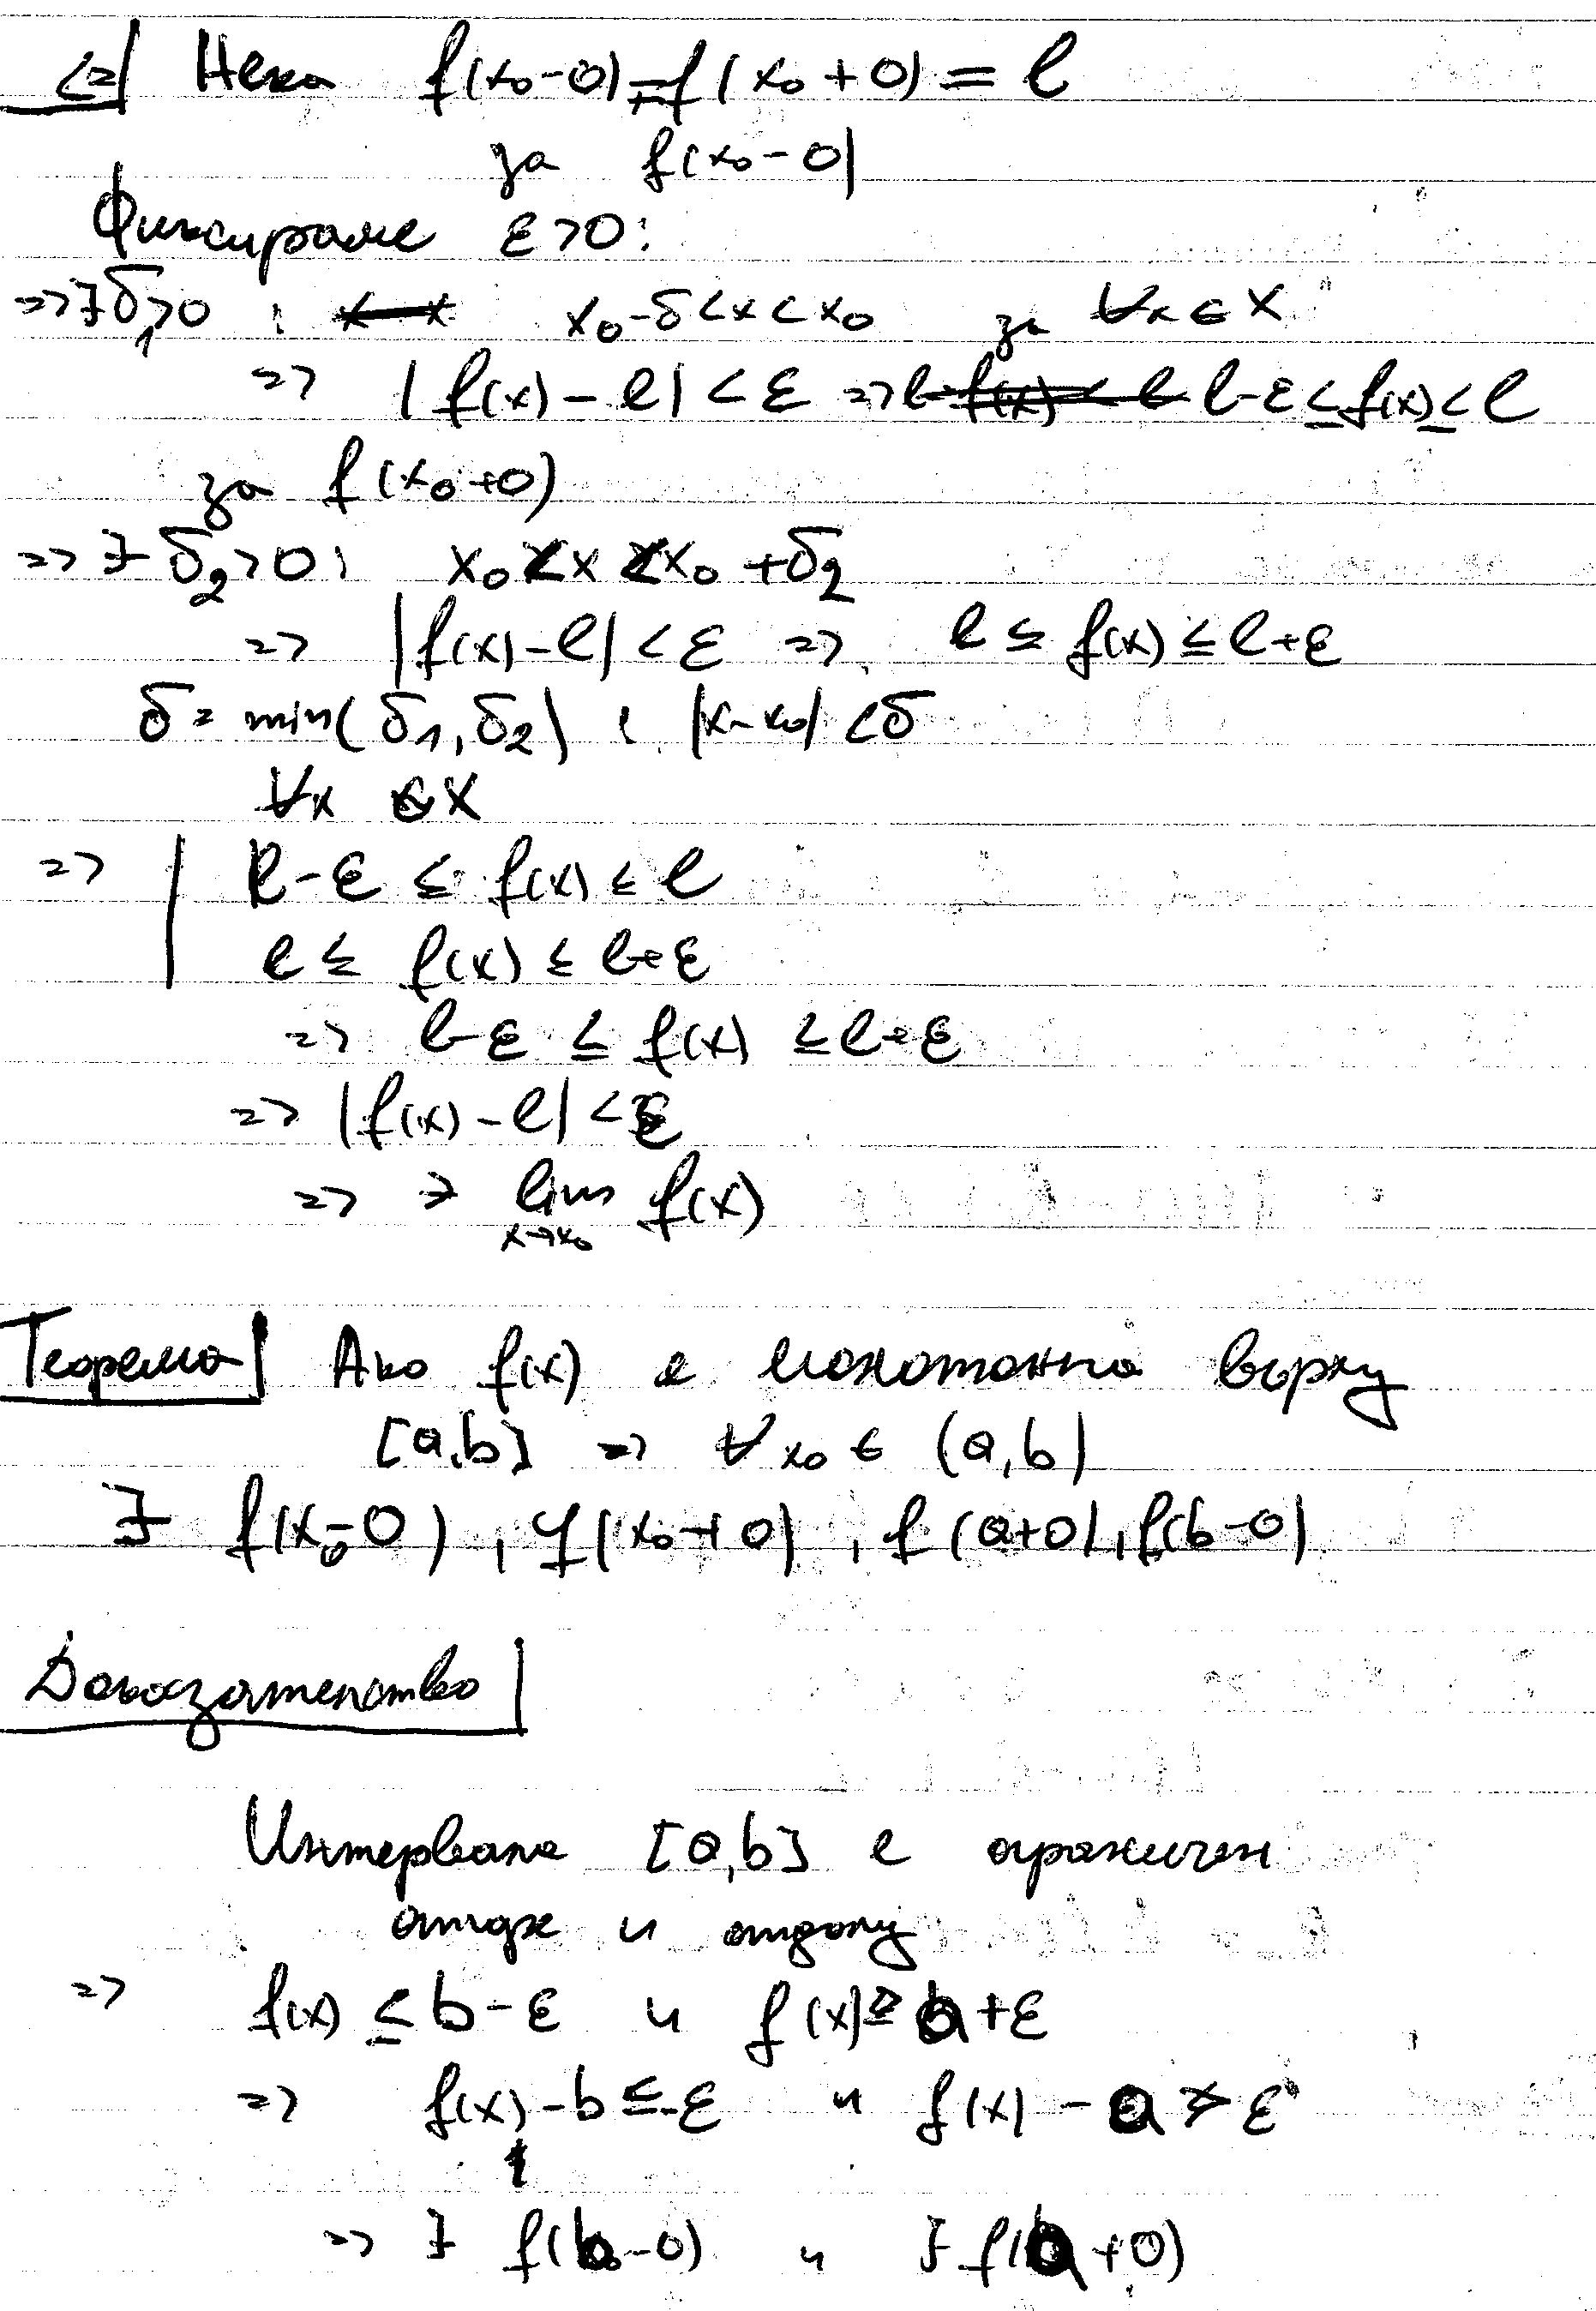 <=| Нека f(x₀-0)=f(x₀+0)=l
за f(x₀-0)
Фиксираме ε>0:
=> ∃δ₁>0 : x₀-δ<x<x₀ за ∀x∈X
=> |f(x)-l|<ε => l-ε≤f(x)≤l
за f(x₀+0)
=> ∃ δ₂>0: x₀<x<x₀+δ₂
=> |f(x)-l|<ε => l≤f(x)≤l+ε
δ=min(δ₁,δ₂) : |x-x₀|<δ
∀x∈X
=> | l-ε≤f(x)≤l
l≤f(x)≤l+ε
=> l-ε≤f(x)≤l+ε
=> |f(x)-l|<ε
=> ∃ lim f(x)
x→x₀
Теорема| Ако f(x) е монотонна върху
[a,b] => ∀x₀∈(a,b)
∃ f(x₀-0), f(x₀+0), f(a+0), f(b-0)
Доказателство|
Интервала [a,b] е ограничен
отгоре и отдолу
=> f(x)≤b-ε и f(x)≥a+ε
=> f(x)-b≤-ε и f(x)-a>ε
=> ∃ f(b-0) и ∃ f(a+0)